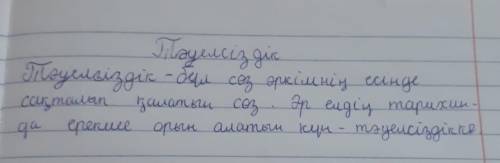 Тәуелсіздік
Тәуелсіздік - бұл сөз әркімнің есінде
сақталып қалатын сөз. Әр елдің тарихын-
да ерекше орын алатын күн - тәуелсіздікке